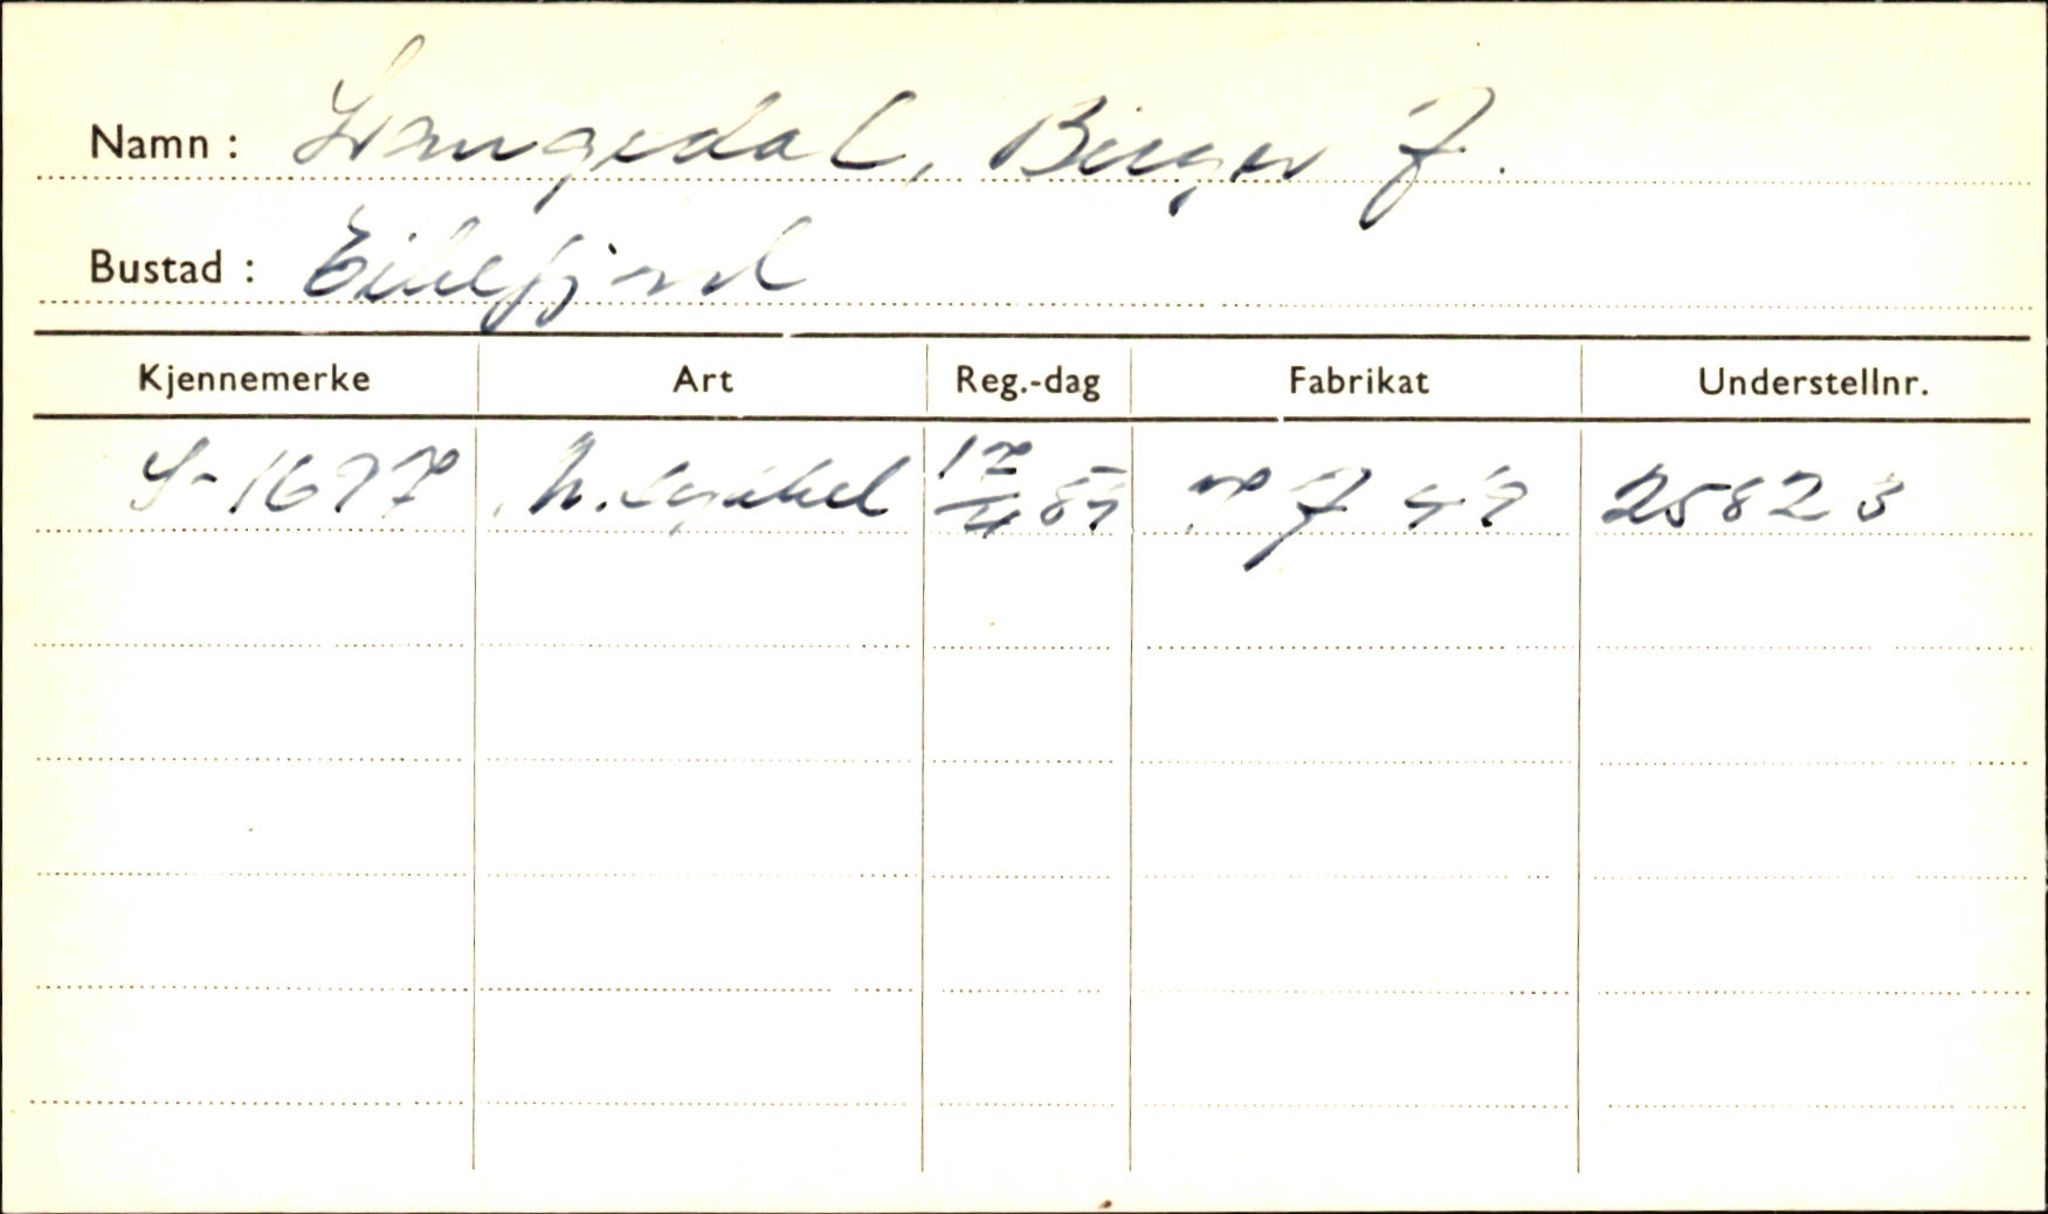 Namn : Svangedal, Birger J.
Bustad : Eikefjord
Kjennemerke Art Reg.-dag Fabrikat Understellnr.
S-1677 M.sykkel 25823